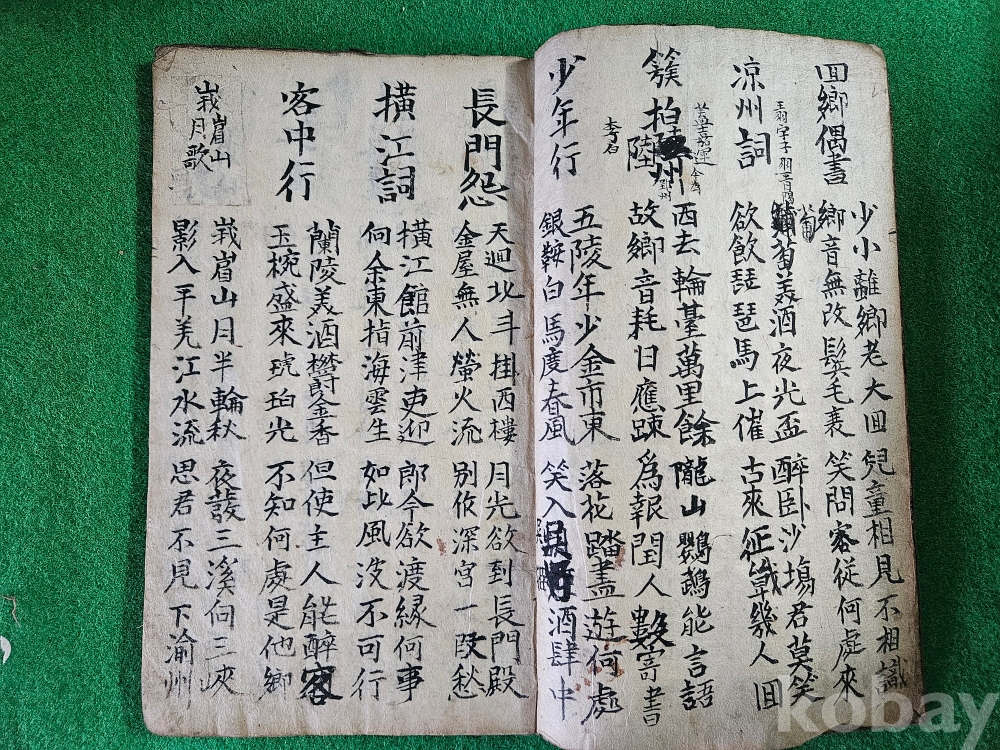 回鄉偶書
少小離鄉老大回 兒童相見不相識
鄉音無改鬂毛衰 笑問客從何處來
凉州詞
葡萄美酒夜光盃 醉卧沙場君莫笑
欲飲琵琶馬上催 古來征戰幾人回
簇拍陸州
西去輪臺萬里餘 隴山鸚鵡能言語
故鄉音耗日應踈 爲報閨人數寄書
少年行
李白
五陵年少金市東 落花踏盡遊何處
銀鞍白馬度春風 笑入酒肆中
長門怨
天迴北斗掛西樓 月光欲到長門殿
金屋無人螢火流 別作深宮一段愁
橫江詞
橫江館前津吏迎 郎今欲渡緣何事
向余東指海雲生 如此風波不可行
客中行
蘭陵美酒欝金香 但使主人能醉客
玉椀盛來琥珀光 不知何處是他鄉
峩眉山月歌
峩眉山月半輪秋 夜發三溪向三峽
影入平羌江水流 思君不見下渝州
kobay